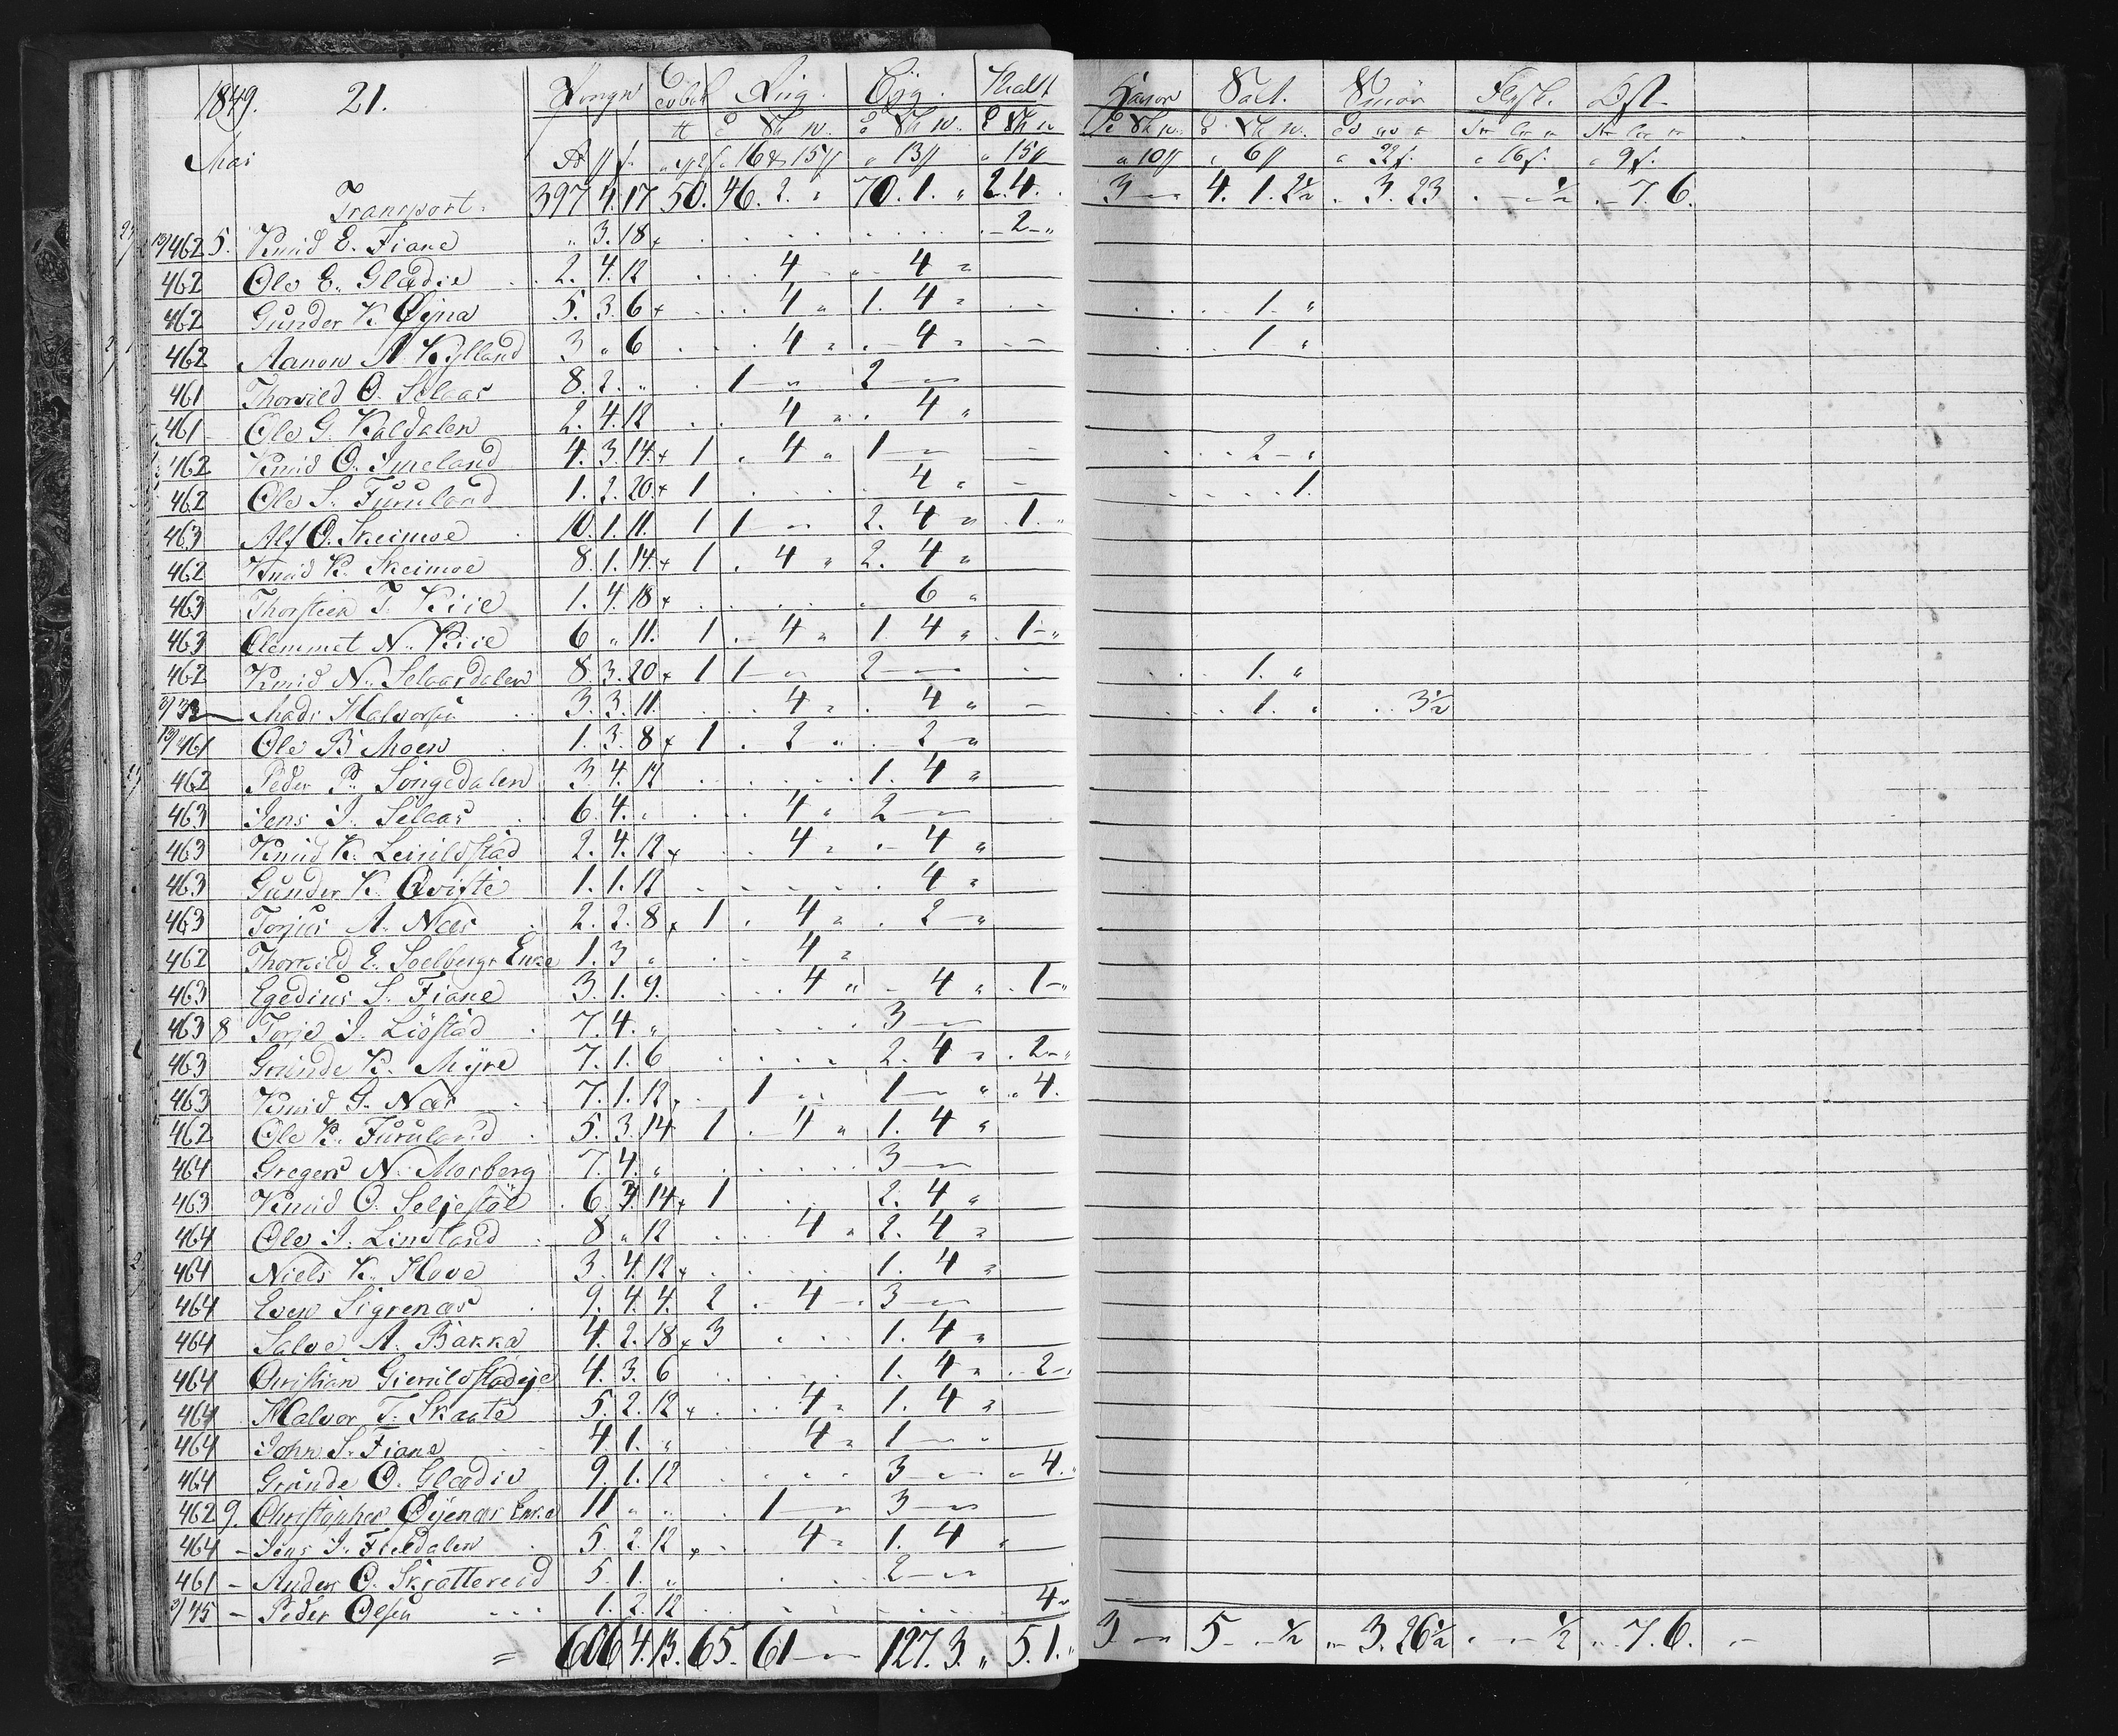 1849. 21. Rug. Byg. Malt Havre Salt. Smör Flesk. Ost
Mai
16 & 15ß " 13ß " 15ß " 10ß " 6ß " 22f. " 16f. " 9f.
Transport. 397 4. 17 50. 46. 2. " 70. 1. " 2. 4. 3 — 4. 1. 2½ . 3. 23 . . – ½ . – 7. 6.
13/462 5. Knud E. Fiane " 3. 18 – 2 – "
462 Ole E. Gladie 2. 4. 12 4 – " 4 "
462 Gunder K. Øÿna 5. 3. 6 4 " 1. 4 " 1. "
462 Aanon A Kylland 3 " 6 4 " 4 " 1 "
461 Thorkild O. Selaas 8. 2. " 1 – " 2 — "
461 – Ole G. Kaldalen 2. 4. 12 4 " 4 "
462 Knud O. Imeland 4. 3. 14 1 4 " 1 — " 2 – "
462 Ole S. Furuland 1. 2. 20 1 4 " 1.
463 Alf O. Skeimoe 10. 1. 11. 1 1 — " 2. 4 " 1. "
462 Knud K. Skeimoe 8. 1. 14 1 4 " 2. 4 "
463 Thorsteen T. Kiie 1. 4. 18 6 "
463 Clemmet N. Kiie 6 " 11. 1 4 " 1. 4 " 1 – "
462 Knud N. Selaasdalen 8. 3. 20 1 1 — " 2 — 1. "
Mads Halvorsen 3. 3. 11. 4 " 4 " 1. " 3½
13/461 Ole B Moen 1. 3. 8 1 2 " 2 – "
462 Peder P. Songedalen 3 4. 12 1. 4 "
463 Jens J. Selaas 6. 4. " 4 " 2 — "
463 Knud K. Leiulvstad 2. 4. 12 4 " 4 "
463 Gunder K. Qviste 1. 1. 12 4 "
463 Torjus A. Næs 2. 2. 8 1 4 " 2 – "
462 Thorkild E. Solbergs Enke 1. 3 " 4 "
463 Egedius S. Fiane 3. 1. 9. 4 " 4 " 1 – "
463 8 Torje J. Lidstad 7. 4. " 3 — "
463 Grunde K. Myre 7. 1. 6 2. 4 " 2 – "
463 Knud G. Næs 7. 1. 12 1 " 1 — " 4.
462 Ole K. Furuland 5. 3. 14 1 4 " 1. 4 "
464 Gregers N. Mosberg 7. 4. " 3 — "
463 Knud O. Seljestöl 6. 3. 14 1 2. 4 "
464 Ole J. Lindland 8 " 12 4 " 2. 4 "
464 Niels K. Hove 3. 4. 12 1. 4 "
464 Even Sigrenæs 9. 4. 4. 2 4 – " 3 — "
464 Salve A. Bakka 4. 2. 18 3 1. 4 "
464 Christian 4. 3. 6 1. 4 " 2 – "
464 Halvor T. Skaate 5. 2. 12 4 " 1. 4 "
464 John S. Fiane 4 1. " 4 " 1 — "
464 Grunde O. Gladie 9. 1. 12 3 — " 4.
462 9. Christopher Øyenæs Enke 11 " " 1 — " 3 — "
464 – Jens J. Fieldalen 5. 2. 12 4 " 1. 4 "
461 – Anders O. Skrattereid 5. 1. " 2 – "
/45 – Peder Olsen 1. 2. 12 4 "
= 606 4. 13. 65. 61 — " 127. 3. " 5. 1. " 3. — " 5 – . – ½ " – 3. 26½ . . – ½ " . 7. 6. . –